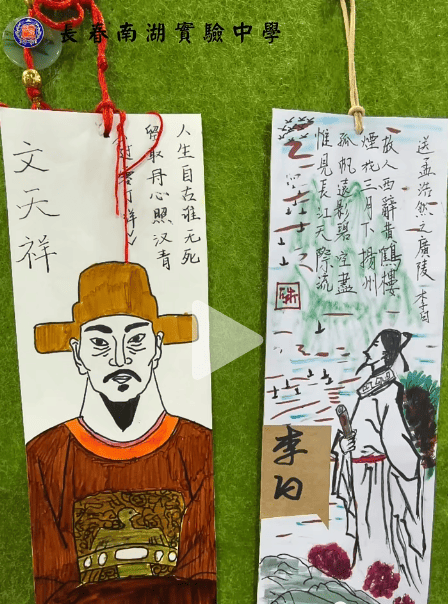 長春南湖實驗中學
人生自古谁无死
留取丹心照汉青
零丁洋
文天祥
送孟浩然之廣陵 李白
故人西辭黄鶴樓
煙花三月下揚州
孤帆遠影碧空盡
惟見長江天際流
李白